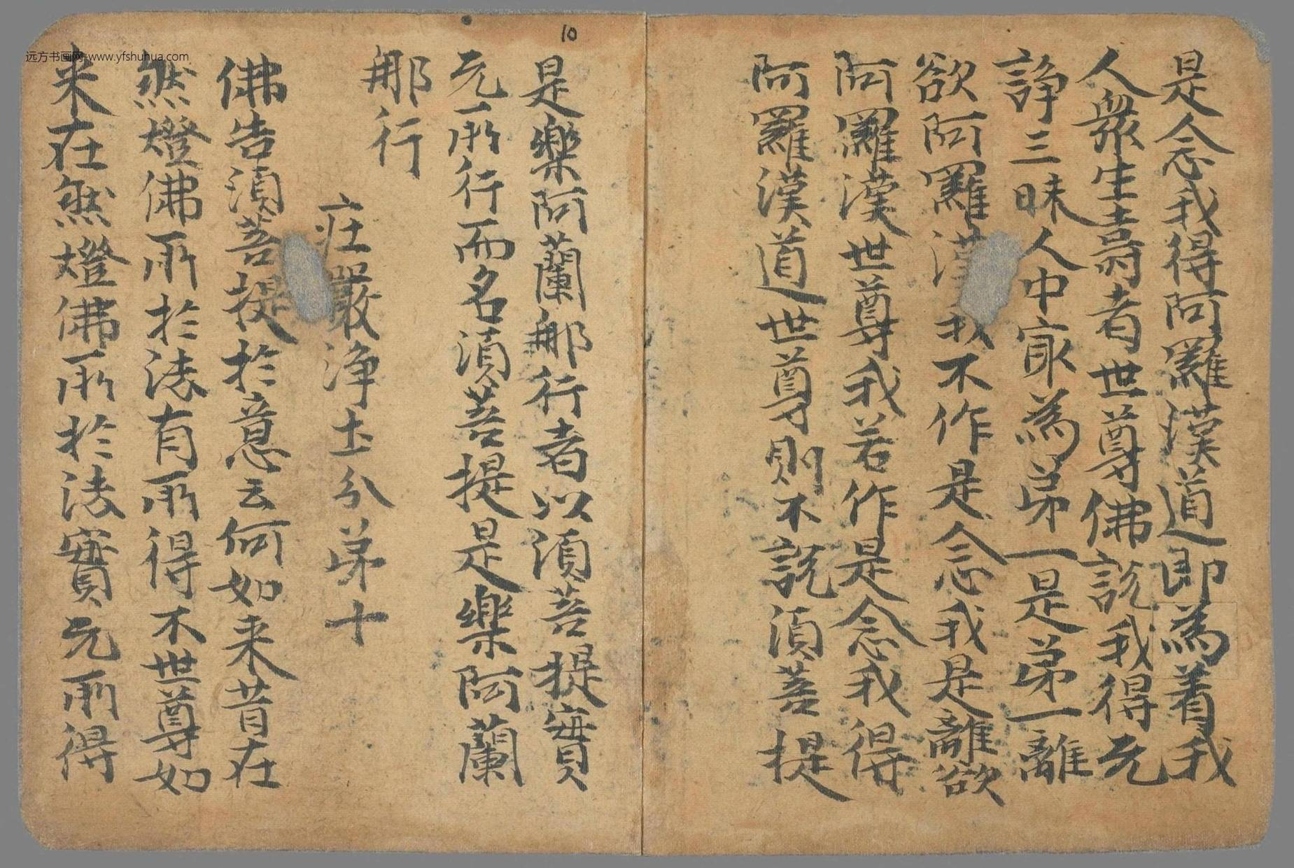 是念我得阿羅漢道即為着我
人衆生壽者世尊佛說我得无
諍三昧人中㝡為苐一是苐一離
欲阿羅漢我不作是念我是離欲
阿羅漢世尊我若作是念我得
阿羅漢道世尊則不說須菩提
10
是樂阿蘭那行者以須菩提實
无所行而名須菩提是樂阿蘭
那行
庄嚴淨土分苐十
佛告須菩提於意云何如来昔在
然燈佛所於法有所得不世尊如
来在然燈佛所於法實无所得
远方书画网-www.yfshuhua.com